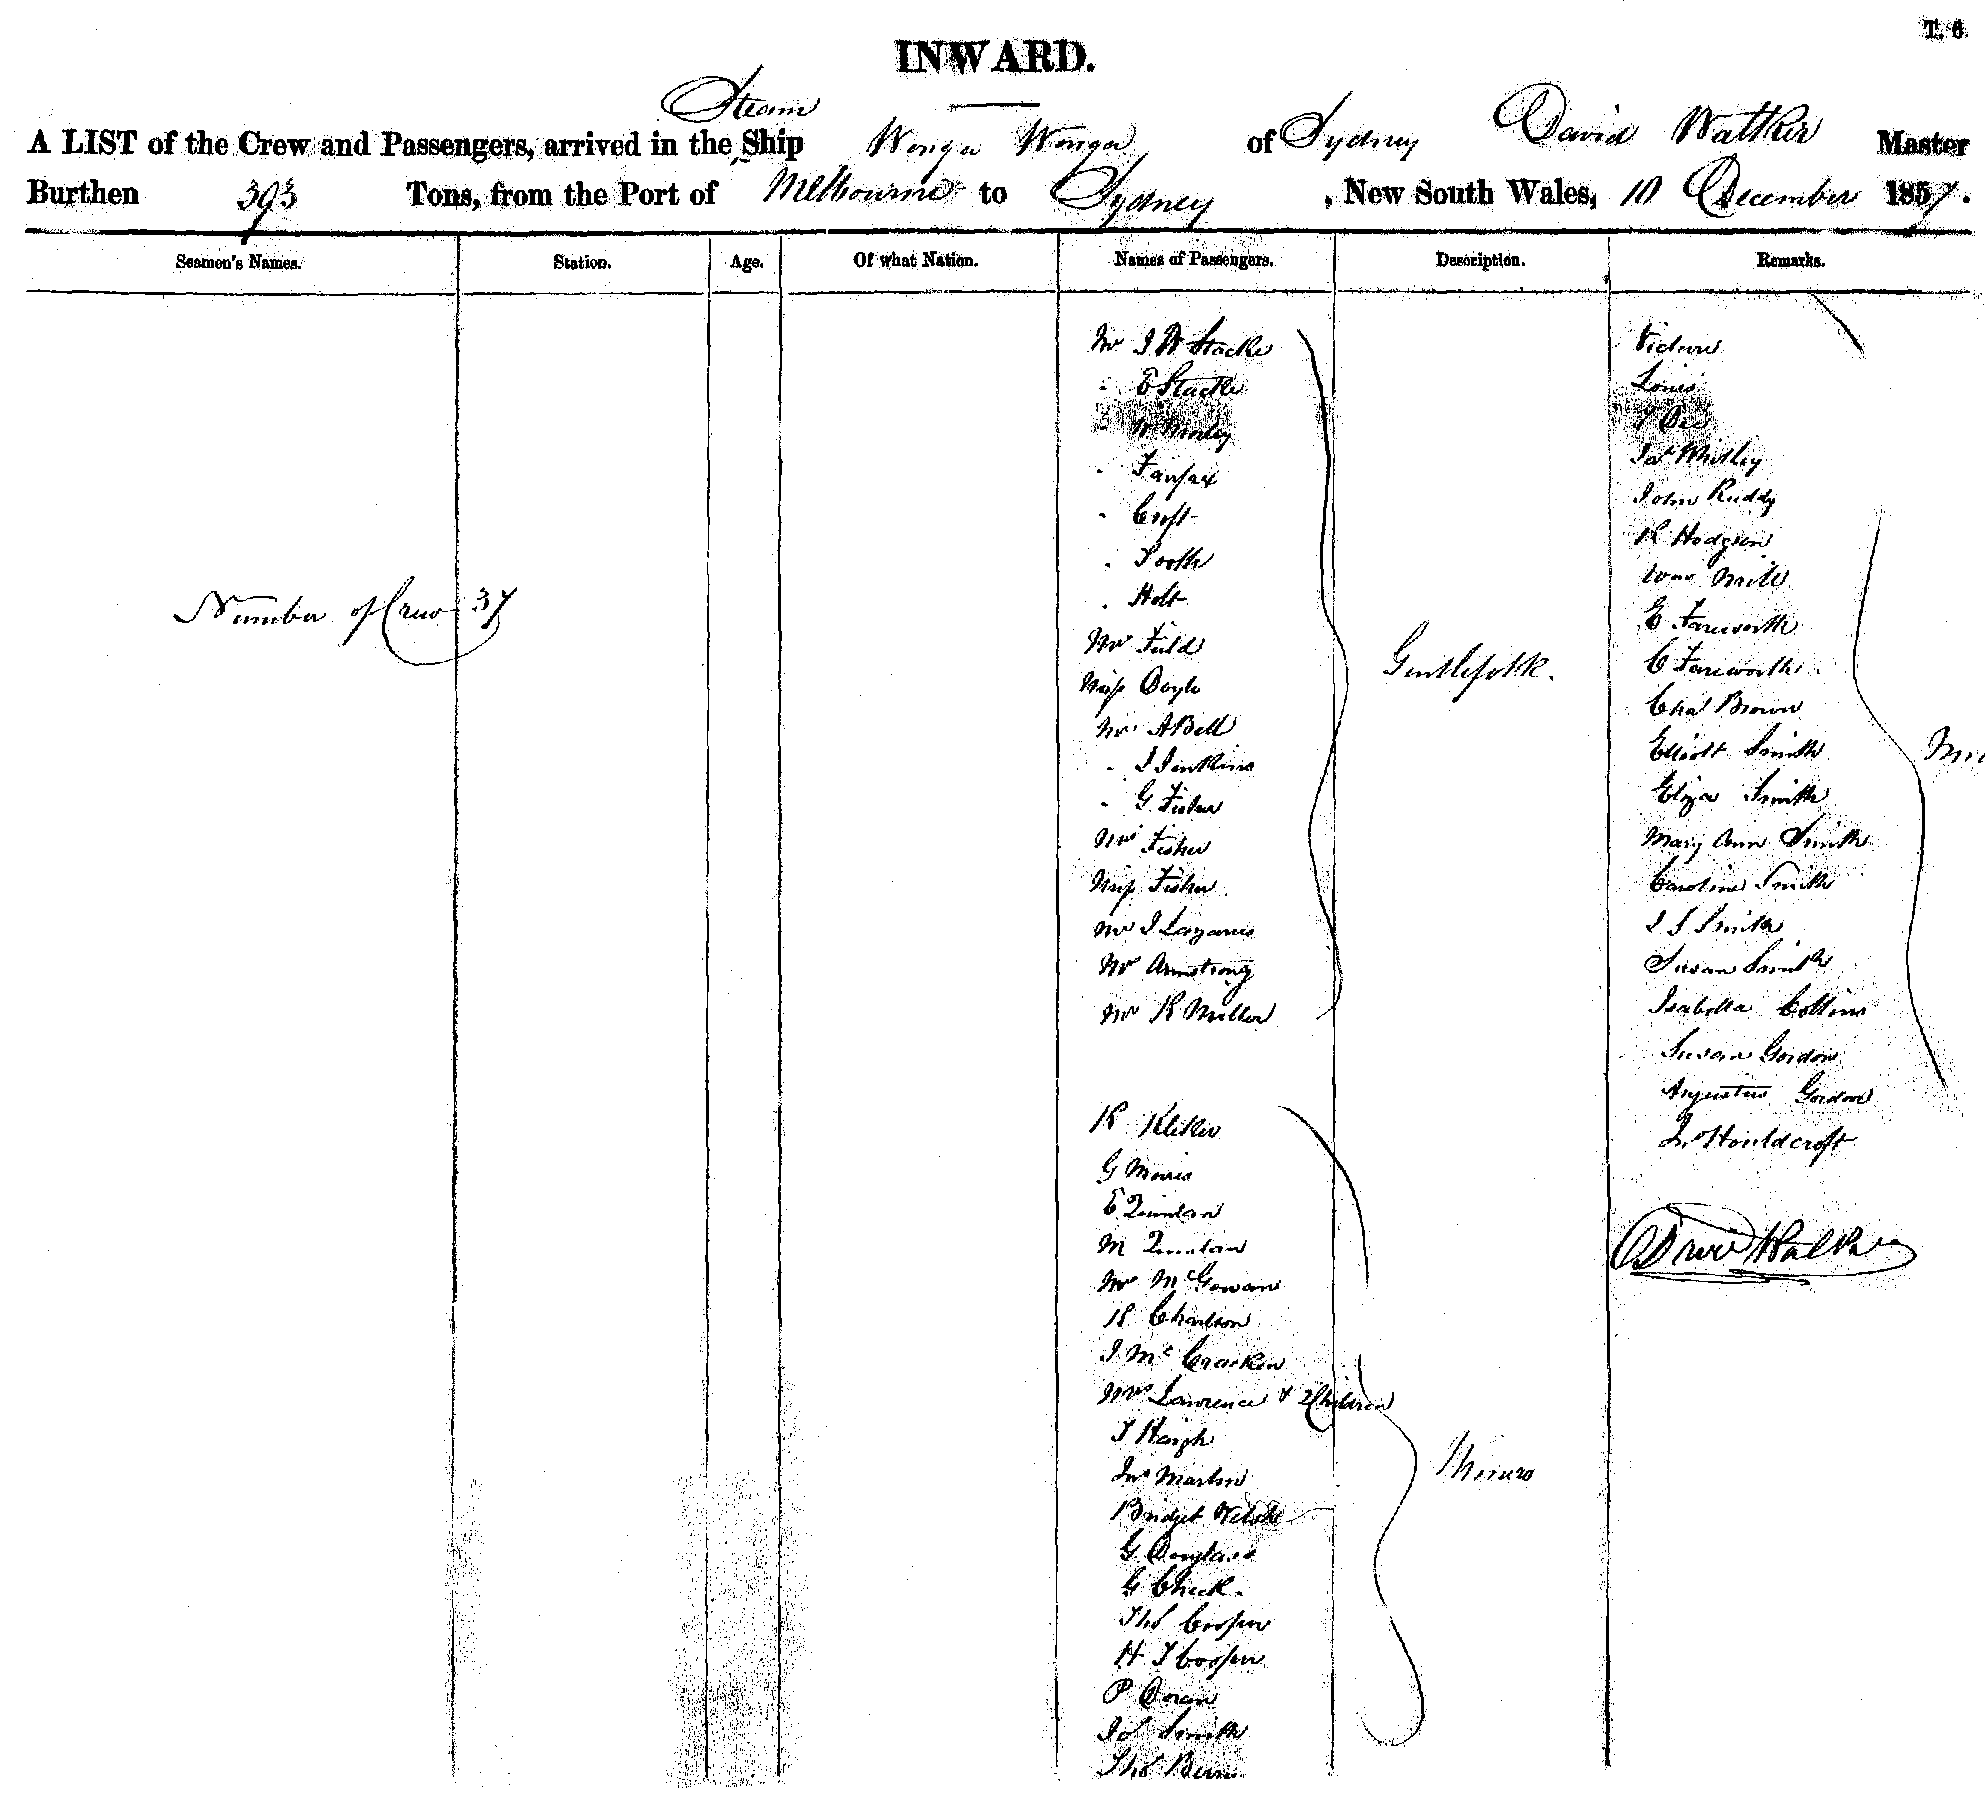 T. 6
INWARD.
Steam
A LIST of the Crew and Passengers, arrived in the Ship Wonga Wonga of Sydney David Walker Master
Burthen 393 Tons, from the Port of Melbourne to Sydney, New South Wales, 10 December 1857.
Seamen's Names. Station. Age. Of what Nation. Names of Passengers. Description. Remarks.
Number of Crew 37
Mr J W Stacke
" E Stacke
" W Morley
" Fairfax
" Croft
" Tooth
" Holt
Mr Field
Miss Doyle
Mr A Bell
" J Jenkins
" G Fisher
Mrs Fisher
Miss Fisher
Mr J Lazarus
Mr Armstrong
Mr R Miller
Gentlefolk.
R
G Morris
E Quinlan
M Quinlan
Mr McGowan
R Charlson
J McCracken
Mrs Lawrence & 2 Children
T Haigh
Jno Marlon
Bridget Welsh
G Douglass
G Cheek.
Thos Cooper
H T Cooper
P Doran
Jos Smith
Thos
Miners
Louis
Jas Whitley
John Ruddy
R Hodgson
E Farnworth
C Farnworth
Chas Brown
Elliott Smith
Eliza Smith
Mary Ann Smith
Caroline Smith
J J Smith
Susan Smith
Isabella Collins
Susan Gordon
Augustus Gordon
Jno Houldcroft
David Walker